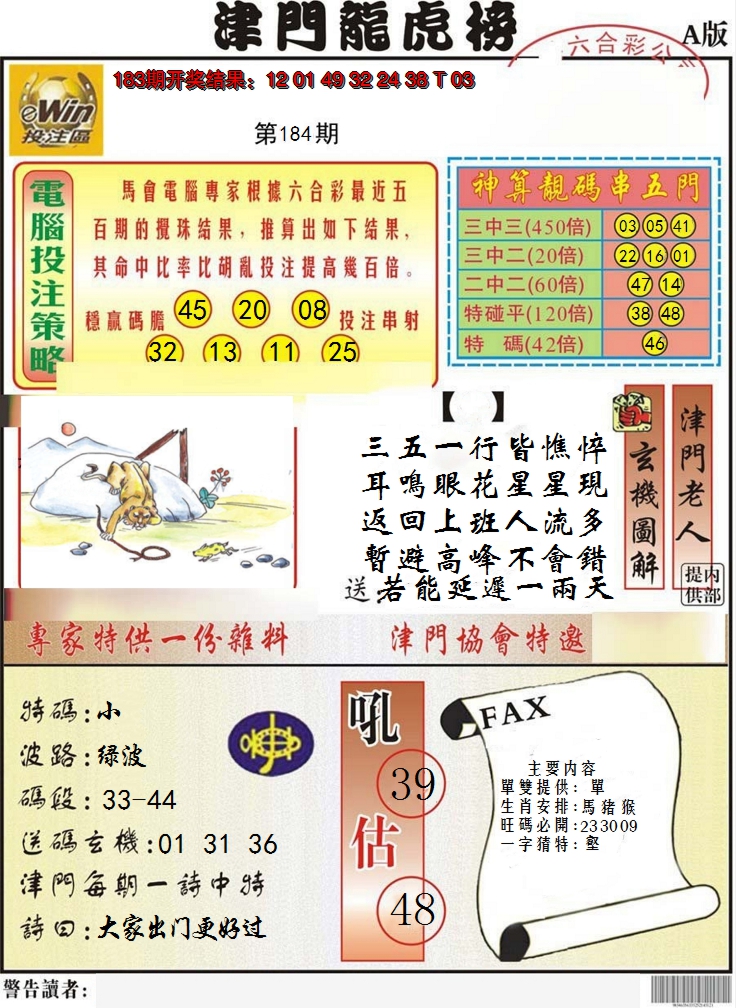 津門龍虎榜
A版
六合彩公
eWin
投注區
183期开奖结果：12 01 49 32 24 38 T 03
第184期
電腦投注策略
馬會電腦專家根據六合彩最近五
百期的攪珠结果，推算出如下结果，
其命中比率比胡亂投注提高幾百倍。
穩贏碼膽 45 20 08 投注串射
32 13 11 25
神算靚碼串五門
三中三(450倍) 03 05 41
三中二(20倍) 22 16 01
二中二(60倍) 47 14
特碰平(120倍) 38 48
特 碼(42倍) 46
【 】
三五一行皆憔悴
耳鳴眼花星星現
返回上班人流多
暫避高峰不會錯
送 若能延遲一兩天
玄機圖解
津門老人
内部提供
專家特供一份雜料
津門協會特邀
特碼:小
波路:绿波
碼段:33-44
送碼玄機:01 31 36
津門每期一詩中特
詩曰:大家出门更好过
吼
39
估
48
FAX
主要内容
單雙提供: 單
生肖安排:馬豬猴
旺碼必開:233009
一字猜特: 壑
警告讀者: